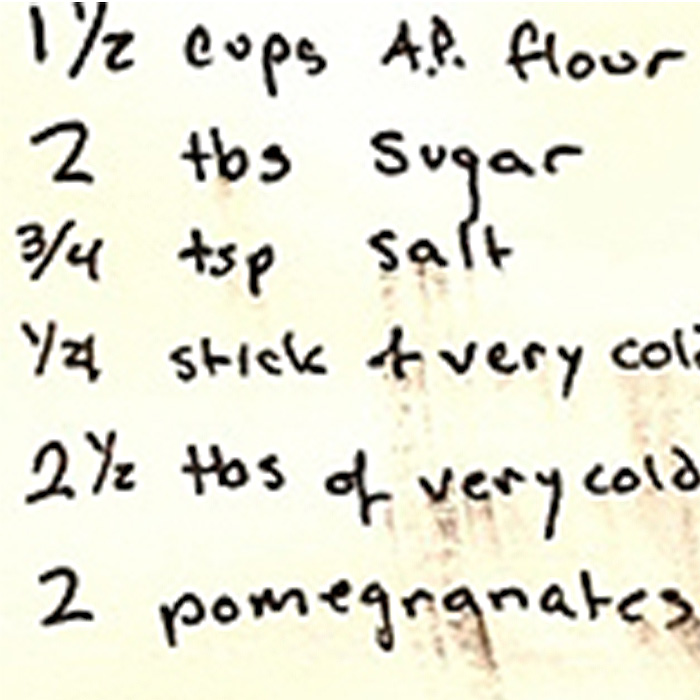 1 1/2 cups A.P. flour
2 tbs sugar
3/4 tsp salt
1/4 stick of very col
2 1/2 tbs of very cold
2 pomegranates